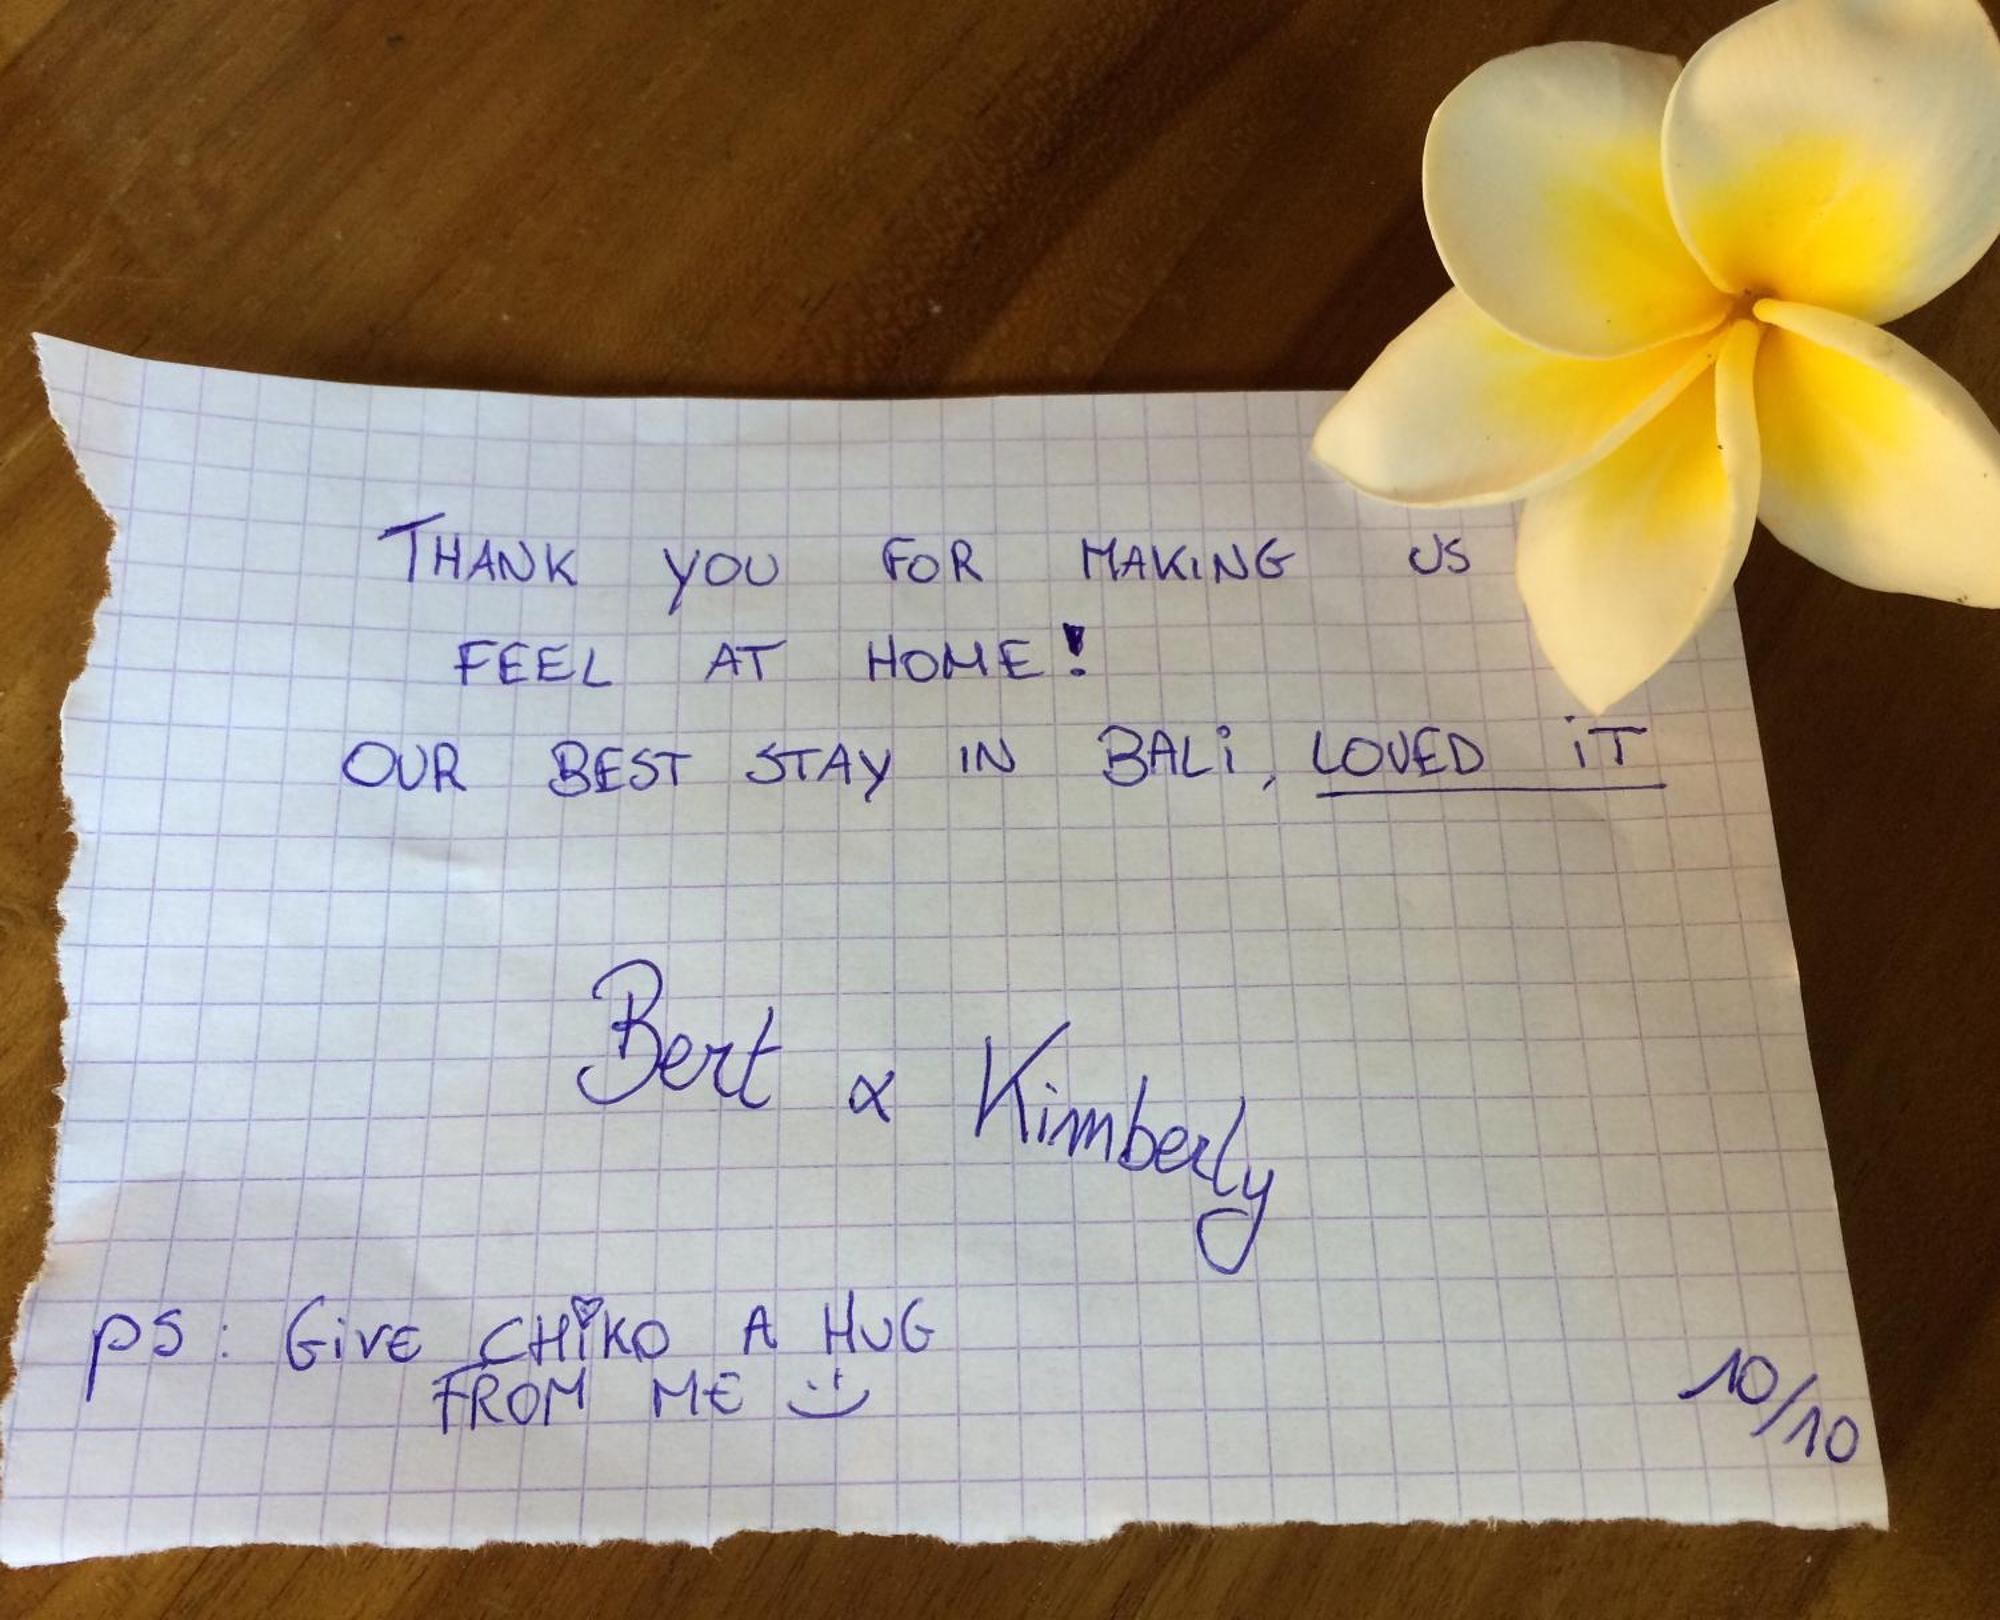 THANK YOU FOR MAKING US
FEEL AT HOME!
OUR BEST STAY IN BALI, LOVED IT
Bert & Kimberly
PS: GIVE CHIKO A HUG
FROM ME :)
10/10